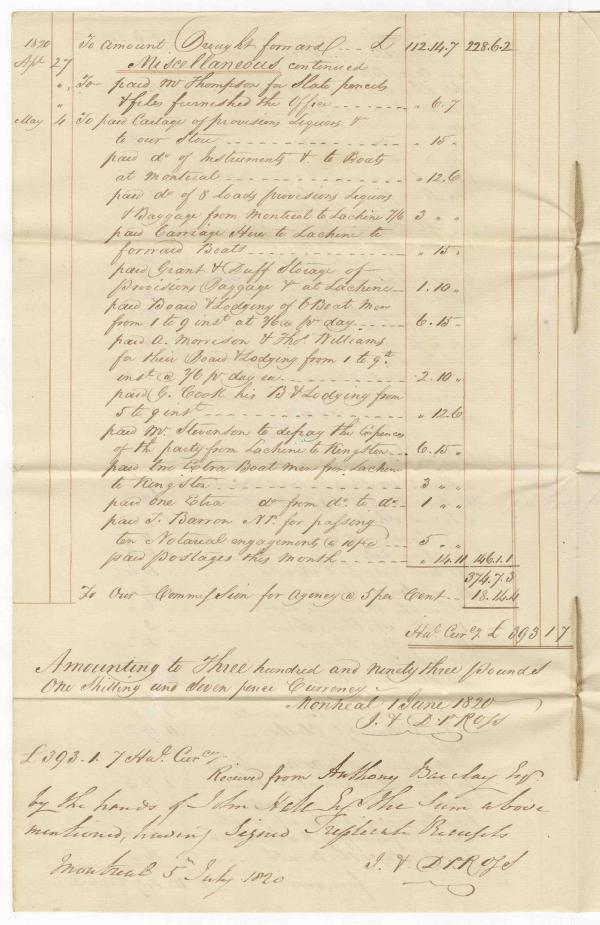 1820 To amount Brought forward --- £ 112.14.7 228.6.2
Apl 27 Miscellaneous continued
" To paid Mr Thompson for Slate pencils
" & files furnished the Office -------- " 6.7
May 4 To paid Cartage of provisions Liquors &
to our Store ---------------- " 15 "
paid do of Instruments & to Boats
at Montreal -------------- " 12.6
paid do of 8 Loads provisions Liquors
& Baggage from Montreal to Lachine 7/6 3 " "
paid Carriage Hire to Lachine to
forward Boats ------------- " 15 "
paid Grant & Duff Storage of
Provisions Baggage & at Lachine -- 1.10 "
paid Board & Lodging of 6 Boat Men
from 1 to 9 inst at 2/6 pr day ----- 6.15 "
paid A. Morrison & Thos Williams
for their Board & Lodging from 1 to 9th
inst @ 2/6 pr day ea. ----------- 2.10 "
paid G. Cook his B & Lodging from
5 to 9 inst ----------------- " 12.6
paid Mr Stevenson to defray the Expences
of the party from Lachine to Kingston -- 6.15 "
paid two Extra Boat men from Lachine
to Kingston --------------- 3 " "
paid one Etra do from do to do -- 1 " "
paid T. Barron NP. for passing
ten Notarial engagements @ 10/ ea -- 5 " "
paid postages this Month -------- " 14.11 146.1.1
374.7.3
To Our Commission for Agency @ 5 per Cent -- 18.14.4
Hax Curcy. £ 393 1 7
Amounting to Three hundred and ninety three pounds
One Shilling and Seven pence Currency
Montreal 1 June 1820
J. & D. P. Ross
£393.1.7 Hax Curcy
Received from Anthony Barclay Esqr.
by the hands of John Hale Esqr the Sum above
mentioned, having Signed Triplicate Receipts
Montreal 5th July 1820 J. & D. P. Ross